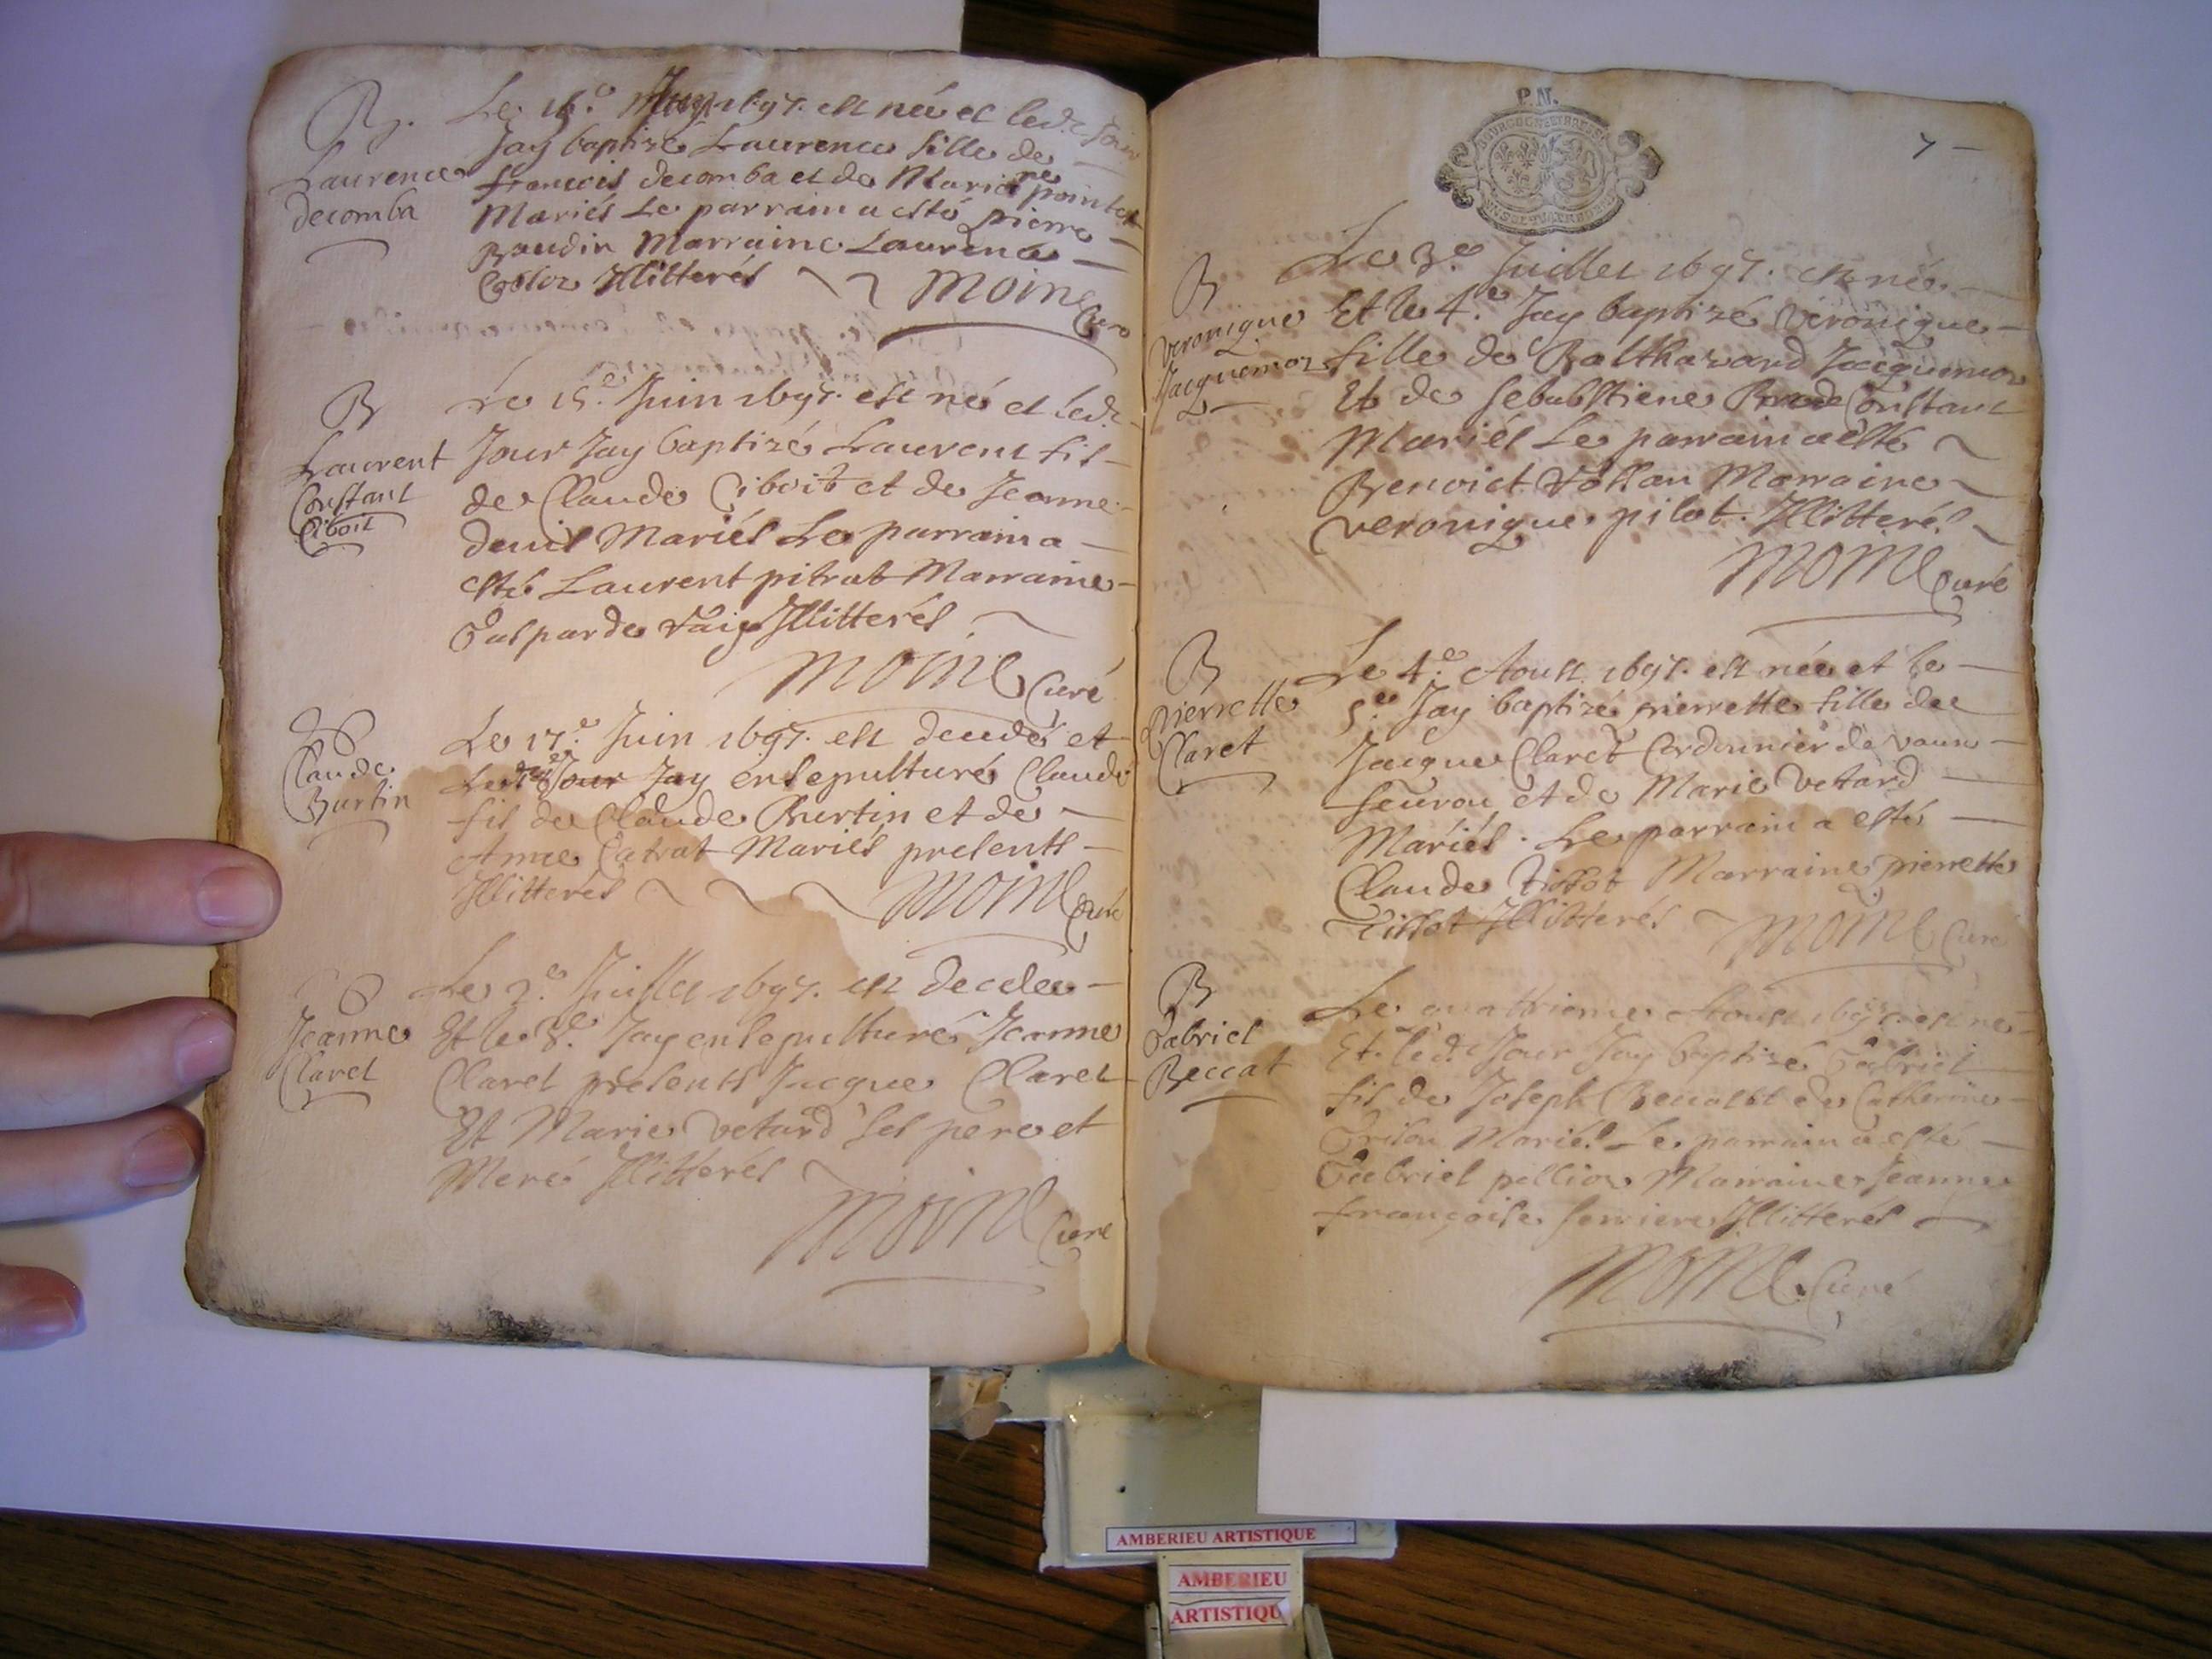 B.
Laurence
decomba
Le 16.e 1697. est née et led.
Jay baptizé Laurence fille de
francois decomba et de Marie pointet
Mariés Le parrain a esté pierre
baudin Marraine Laurence
Illitterés
Moine Curé
B
Laurent
Constant
Ciboit
Le 15.e Juin 1697. est né et led.
Jour Jay baptizé Laurent fil
de Claude Ciboit et de Jeanne
denis Mariés Le parrain a
esté Laurent pitrat Marraine
Gasparde Illitterés
Moine Curé
Claude
Burtin
Le 17.e Juin 1697. est decedé et
Jour Jay ensepulturé Claude
fil de Claude Burtin et de
Mariés presents
Illitterés
Moine Curé
Jeanne
Claret
Le 2.e Juillet 1697. est decedee
Et le 3.e Jay ensepulturé Jeanne
Claret presents Jacque Claret
Et Marie Vetard ses pere et
Mere Illitterés
Moine Curé
P.N.
7
B
Veronique
Jacquemoz
Le 3.e Juillet 1697. est née
Et le 4.e Jay baptizé Veronique
fille de Balthazard Jacquemoz
Et de Sebastiene Constant
Mariés Le parrain a esté
Benoict Vollan Marraine
Veronique pilot. Illitterés
Moine Curé
B
Pierrette
Claret
Le 4.e Aoust 1697. est née et le
5.e Jay baptizé pierrette fille de
Jacque Claret Cordonnier de Vaux
fevrou et de Marie Vetard
Mariés. Le parrain a esté
Claude Tissot Marraine pierrette
Tissot Illitterés
Moine Curé
B
Gabriel
Beccat
Le quattrieme Aoust 1697. est né
Et led. Jour Jay baptizé Gabriel
fil de Joseph de Catherine
Mariés Le parrain a esté
Gabriel Marraine Jeanne
françoise Illitterés
Moine Curé
AMBERIEU ARTISTIQUE
AMBERIEU
ARTISTIQU